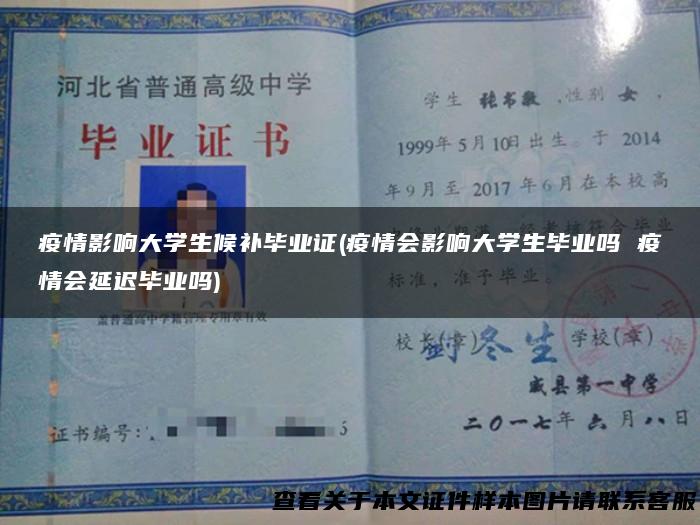 河北省普通高级中学
毕业证书
盖普通高中学籍管理专用章有效
证书编号:
学生 张书敏 ,性别 女 ,
1999年5月10日出生。于 2014
年9月至 2017 年6月在本校高
标准,准予毕业。
校长(章) 学校(章)
威县第一中学
二〇一七年 六 月 八 日
疫情影响大学生候补毕业证(疫情会影响大学生毕业吗 疫
情会延迟毕业吗)
查看关于本文证件样本图片请联系客服